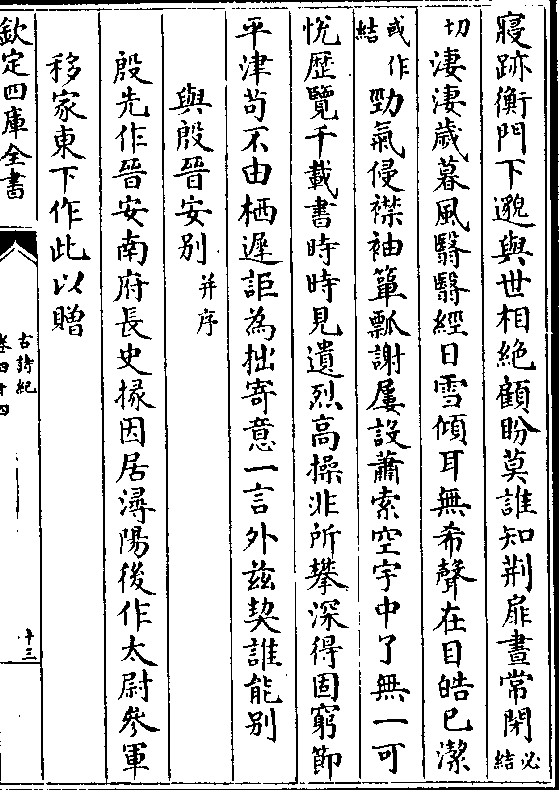 寢跡衡門下邈與世相絶顧盼莫誰知荆扉晝常閉必結
切淒淒歲暮風翳翳經日雪傾耳無希聲在目皓已潔
或作結勁氣侵襟袖簞瓢謝屢設蕭索空宇中了無一可
悅歷覽千載書時時見遺烈高操非所攀深得固窮節
平津苟不由栖遲詎為拙寄意一言外兹契誰能别
與殷晉安别并序
殷先作晉安南府長史掾因居潯陽後作太尉參軍
移家東下作此以贈
欽定四庫全書
古詩紀
卷四十四
十三